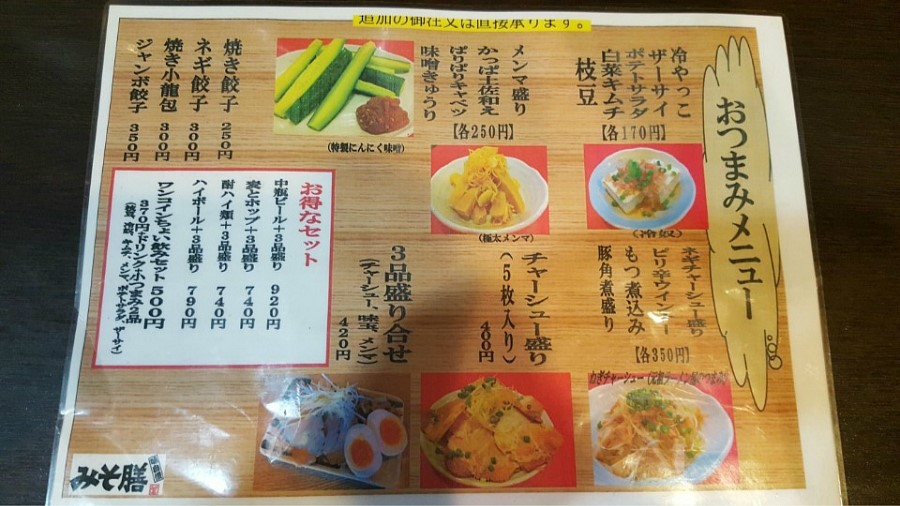 追加の御注文は直接承ります。
おつまみメニュー
冷やっこ
ザーサイ
ポテトサラダ
白菜キムチ
枝豆
【各170円】
(冷奴)
メンマ盛り
かっぱ土佐和え
ぱりぱりキャベツ
味噌きゅうり
【各250円】
(極太メンマ)
(特製にんにく味噌)
焼き餃子 250円
ネギ餃子 300円
焼き小龍包 300円
ジャンボ餃子 350円
ネギチャーシュー盛り
ピリ辛ウインナー
もつ煮込み
豚角煮盛り
【各350円】
チャーシュー盛り
(5枚入り) 400円
3品盛り合せ
(チャーシュー、味玉、メンマ)
420円
お得なセット
中瓶ビール+3品盛り 920円
麦とホップ+3品盛り 740円
酎ハイ類+3品盛り 740円
ハイボール+3品盛り 790円
ワンコインちょい飲みセット 500円
370円ドリンク+小つまみ2品
(枝豆、冷奴、キムチ、メンマ、ポテトサラダ、ザーサイ)
みそ膳